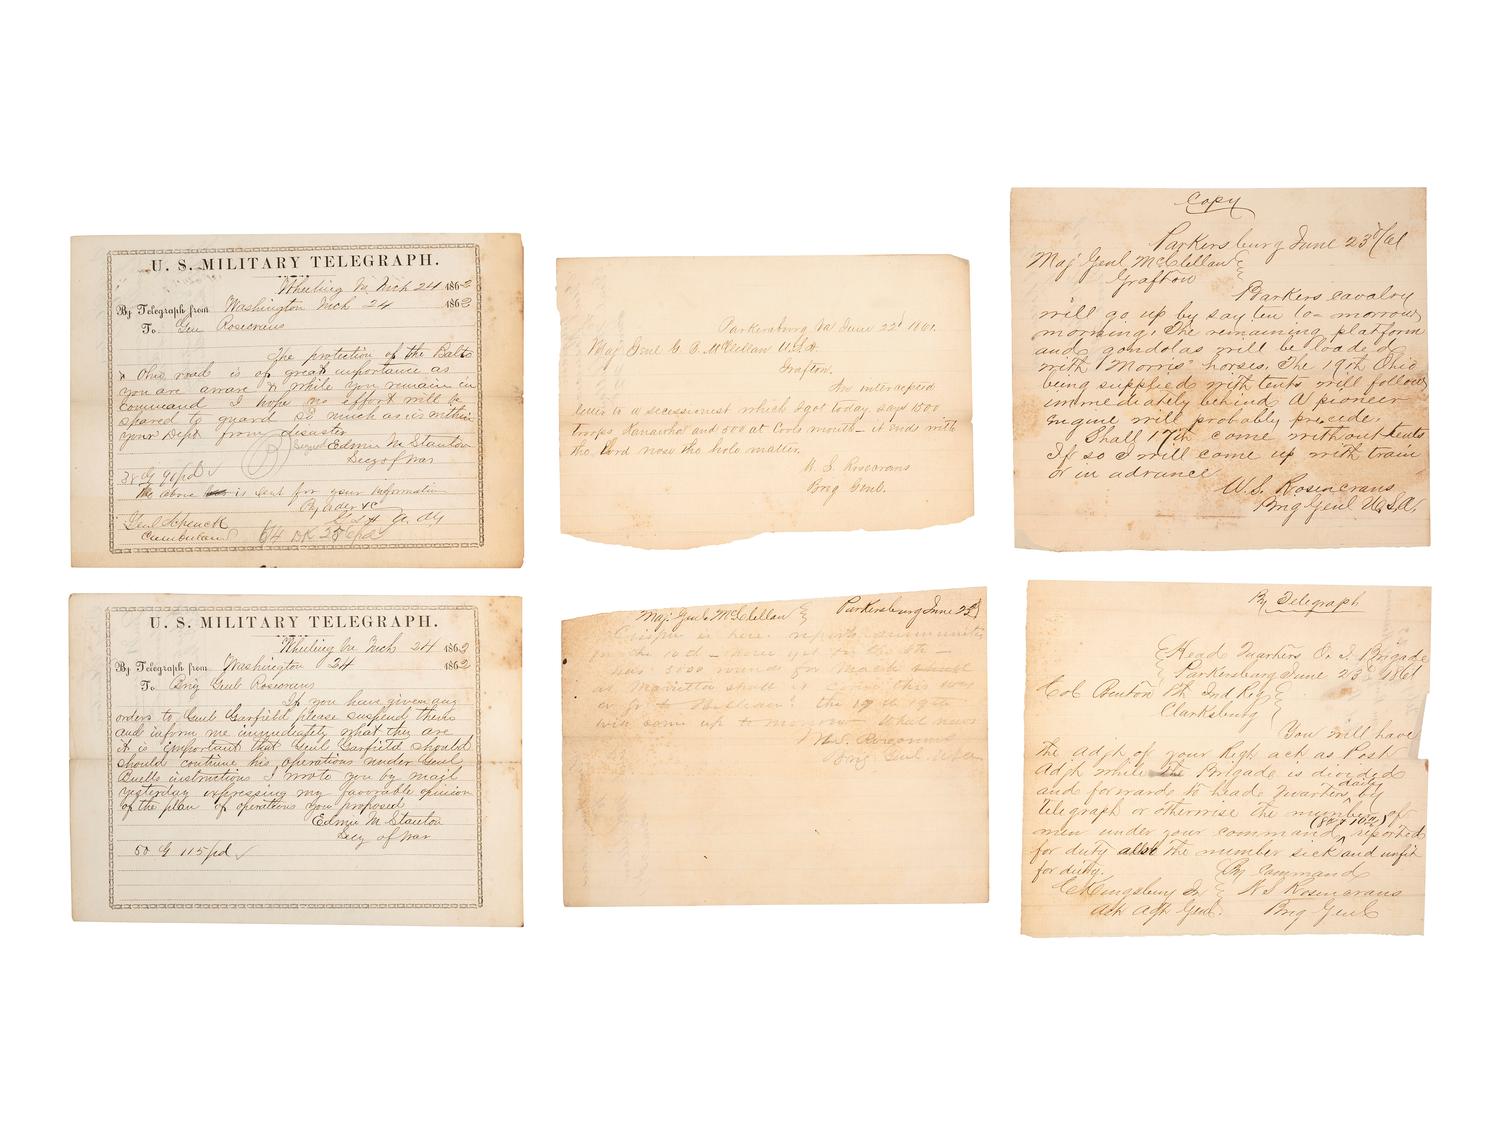 U. S. MILITARY TELEGRAPH.
Wheeling Va Mch 24 1862
By Telegraph from Washington Mch 24 1862
To Gen Rosecrans
The protection of the Balto
& Ohio road is of great importance as
you are aware & while you remain in
command I hope no effort will be
spared to guard so much as is within
your Dept from disaster
Signed Edwin M Stanton
Secy of War
38 G 90 pd
The above is sent for your information
By order &c
Genl Schenck
Cumberland
U. S. MILITARY TELEGRAPH.
Wheeling Va Mch 24 1862
By Telegraph from Washington 24 1862
To Brig Genl Rosecrans
If you have given any
orders to Genl Garfield please suspend them
and inform me immediately what they are
it is important that Genl Garfield should
should continue his operations under Genl
Buells instructions I wrote you by mail
yesterday expressing my favorable opinion
of the plan of operations you proposed
Edwin M Stanton
Secy of War
50 G 115 pd
Parkersburg Va June 22d 1861.
Maj Genl G. B. McClellan U.S.A.
Grafton.
An intercepted
letter to a secessionest which I got today says 1500
troops Kanawha and 500 at Coals mouth - it ends with
the Lord nose the hole matter.
W. S. Rosecrans
Brig Genl.
Maj. Genl. McClellan Parkersburg June 23d
Crispin is here. reports ammunition
for the 10th - none yet for the 8th -
has 5000 rounds for Mack
at Marietta shall it come this way
or go to Bellear? the 17th 19th
will come up to morrow What news
W. S. Rosecrans
Brig. Genl. USA
Copy
Parkersburg June 23d/61
Maj Genl McClellan
Grafton
Barkers cavalry
will go up by say ten to-morrow
morning. The remaining platform
and gondolas will be loaded
with Morris' horses. The 19th Ohio
being supplied with tents will follow
immediately behind A pioneer
engine will probably precede.
Shall 17th come without tents
If so I will come up with train
or in advance
W. S. Rosencrans
Brig Genl U.S.A.
By Telegraph
Head Quarters O. I. Brigade
Parkersburg June 23 1861
Col Benton 8th Ind Reg
Clarksburg
You will have
the Adjt of your Regt act as Post
Adjt while the Brigade is divided
and forwards to head Quarters daily by
telegraph or otherwise the number of
men under your command (8th & 10th) reported
for duty also the number sick and unfit
for duty.
By Command
E Kingsbury Jr W S Rosencrans
Act Adjt Genl. Brig Genl